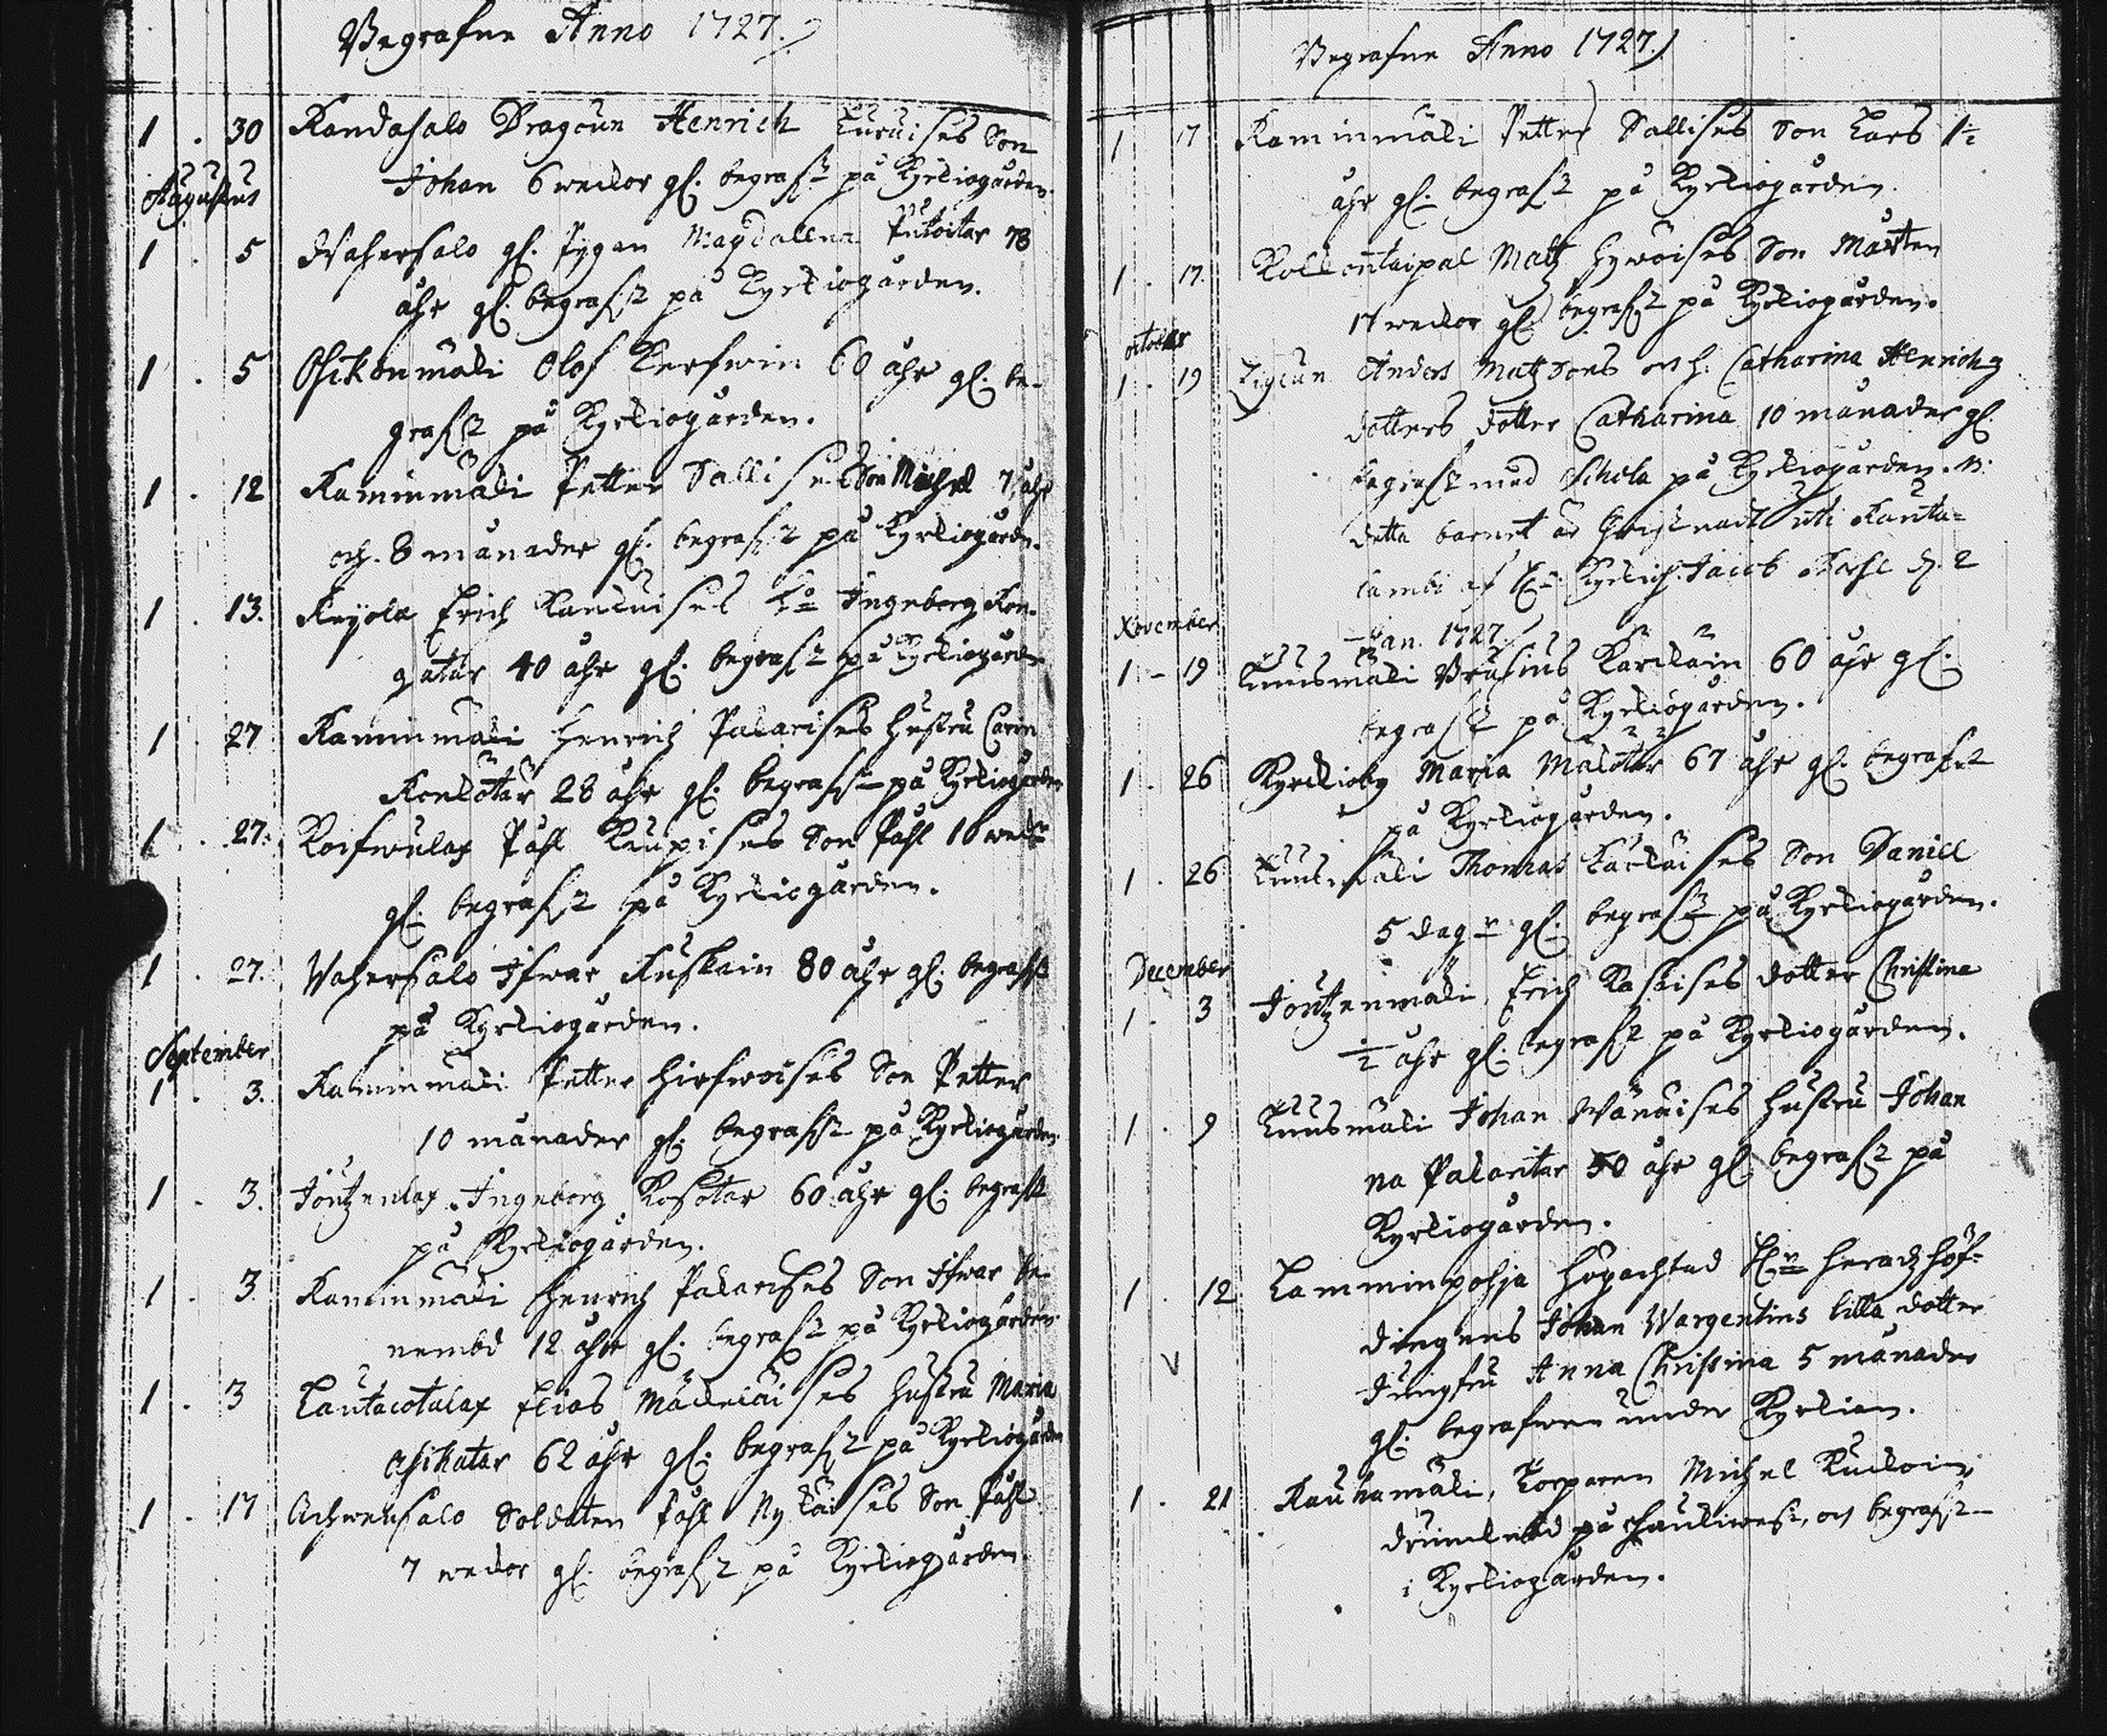 Begrafne Anno 1727.
1 . 30 Kandasalo Dragoun Henrich Son
Johan 6 weckor gl. begrafn på Kyrkiogården.
Augustus
1 . 5 Wahersalo gl. Pygan Magdallena Putoitar 78
åhr gl. begrafn på Kyrkiogården.
1 . 5 Osikonmäki Olof Kerfwin 60 åhr gl. be-
grafn på Kyrkiogården.
1 . 12 Kaminmäki Petter Sallises Son Michel 7 åhr
och 8 månader gl. begrafn på Kyrkiogården.
1 . 13. Keyola Erich Kankuises Ho Ingeborg Kon-
gatar 40 åhr gl. begrafn på Kyrkiogården
1 . 27 Kaminmäki Henrich Pakarises hustru Caren
Konkotar 28 åhr gl. begrafn på Kyrkiogården
1 . 27. Koifwulax Påhl Kaupises Son Påhl 10 weckr
gl. begrafn på Kyrkiogården.
1 . 27. Wahersalo Ifwar Kuskoin 80 åhr gl. begrafn
på Kyrkiogården.
September
1 . 3. Kaminmäki Petter Hirfwoises Son Petter
10 månader gl. begrafn på Kyrkiogården.
1 . 3. Joutzenlax Ingeborg Kosotar 60 åhr gl. begrafn
på Kyrkiogården.
1 . 3. Kaminmäki Henrich Pakarises Son Ifwar be-
nembd 12 åhr gl. begrafn på Kyrkiogården.
1 . 3 Lautacotalax Elias Mäckeläises hustru Maria
Asikatar 62 åhr gl. begrafn på Kyrkiogården
1 . 17 Achwensalo Soldaten Påhl Nykäises Son Påhl
7 weckor gl. begrafn på Kyrkiogården.
Begrafne Anno 1727.
1 17 Kaminmäki Petter Sallises Son Lars 1½
åhr gl. begrafn på Kyrkiogården.
1 . 17. Kolkontaipal Matz Hywöises Son Mårten
17 weckor gl. begrafn på Kyrkiogården.
october
1 . 19 Zigeun Anders Matzsons och h. Catharina Henrichz
dotters dotter Catharina 10 månader gl.
begrafn med Schola på Kyrkiogården. N:
detta barnet är Christnadt uti Kanta-
lambi af Hr Kyrkioh. Jacob d. 2
Jan. 1727.
November
1 - 19 Kuusmäki Brusius Karckäin 60 åhr gl.
begrafn på Kyrkiogården.
1 . 26 Kyrckioby Maria Malotar 67 åhr gl. begrafn
på Kyrkiogården.
1 . 26 Kuusmäki Thomas Karckäises Son Daniel
5 dagr gl. begrafn på Kyrkiogården.
December
1 . 3 Joutzenmäki Erich Kosoises dotter Christina
½ åhr gl. begrafn på Kyrkiogården.
1 . 9 Kuusmäki Johan Wänäises hustru Johan
na Pakaritar 50 åhr gl. begrafn på
Kyrkiogården.
1 . 12 Lamminpohja Högachtad Hrn Heradzhöf-
dingens Johan Wargentins lilla dotter
Jungfru Anna Christina 5 månader
gl. begrafwen under Kyrkian.
1 . 21 Kauhamäki, Torparen Michel Kuckoin
drunknad på Haukiwesi, och begrafn
i Kyrkiogården.